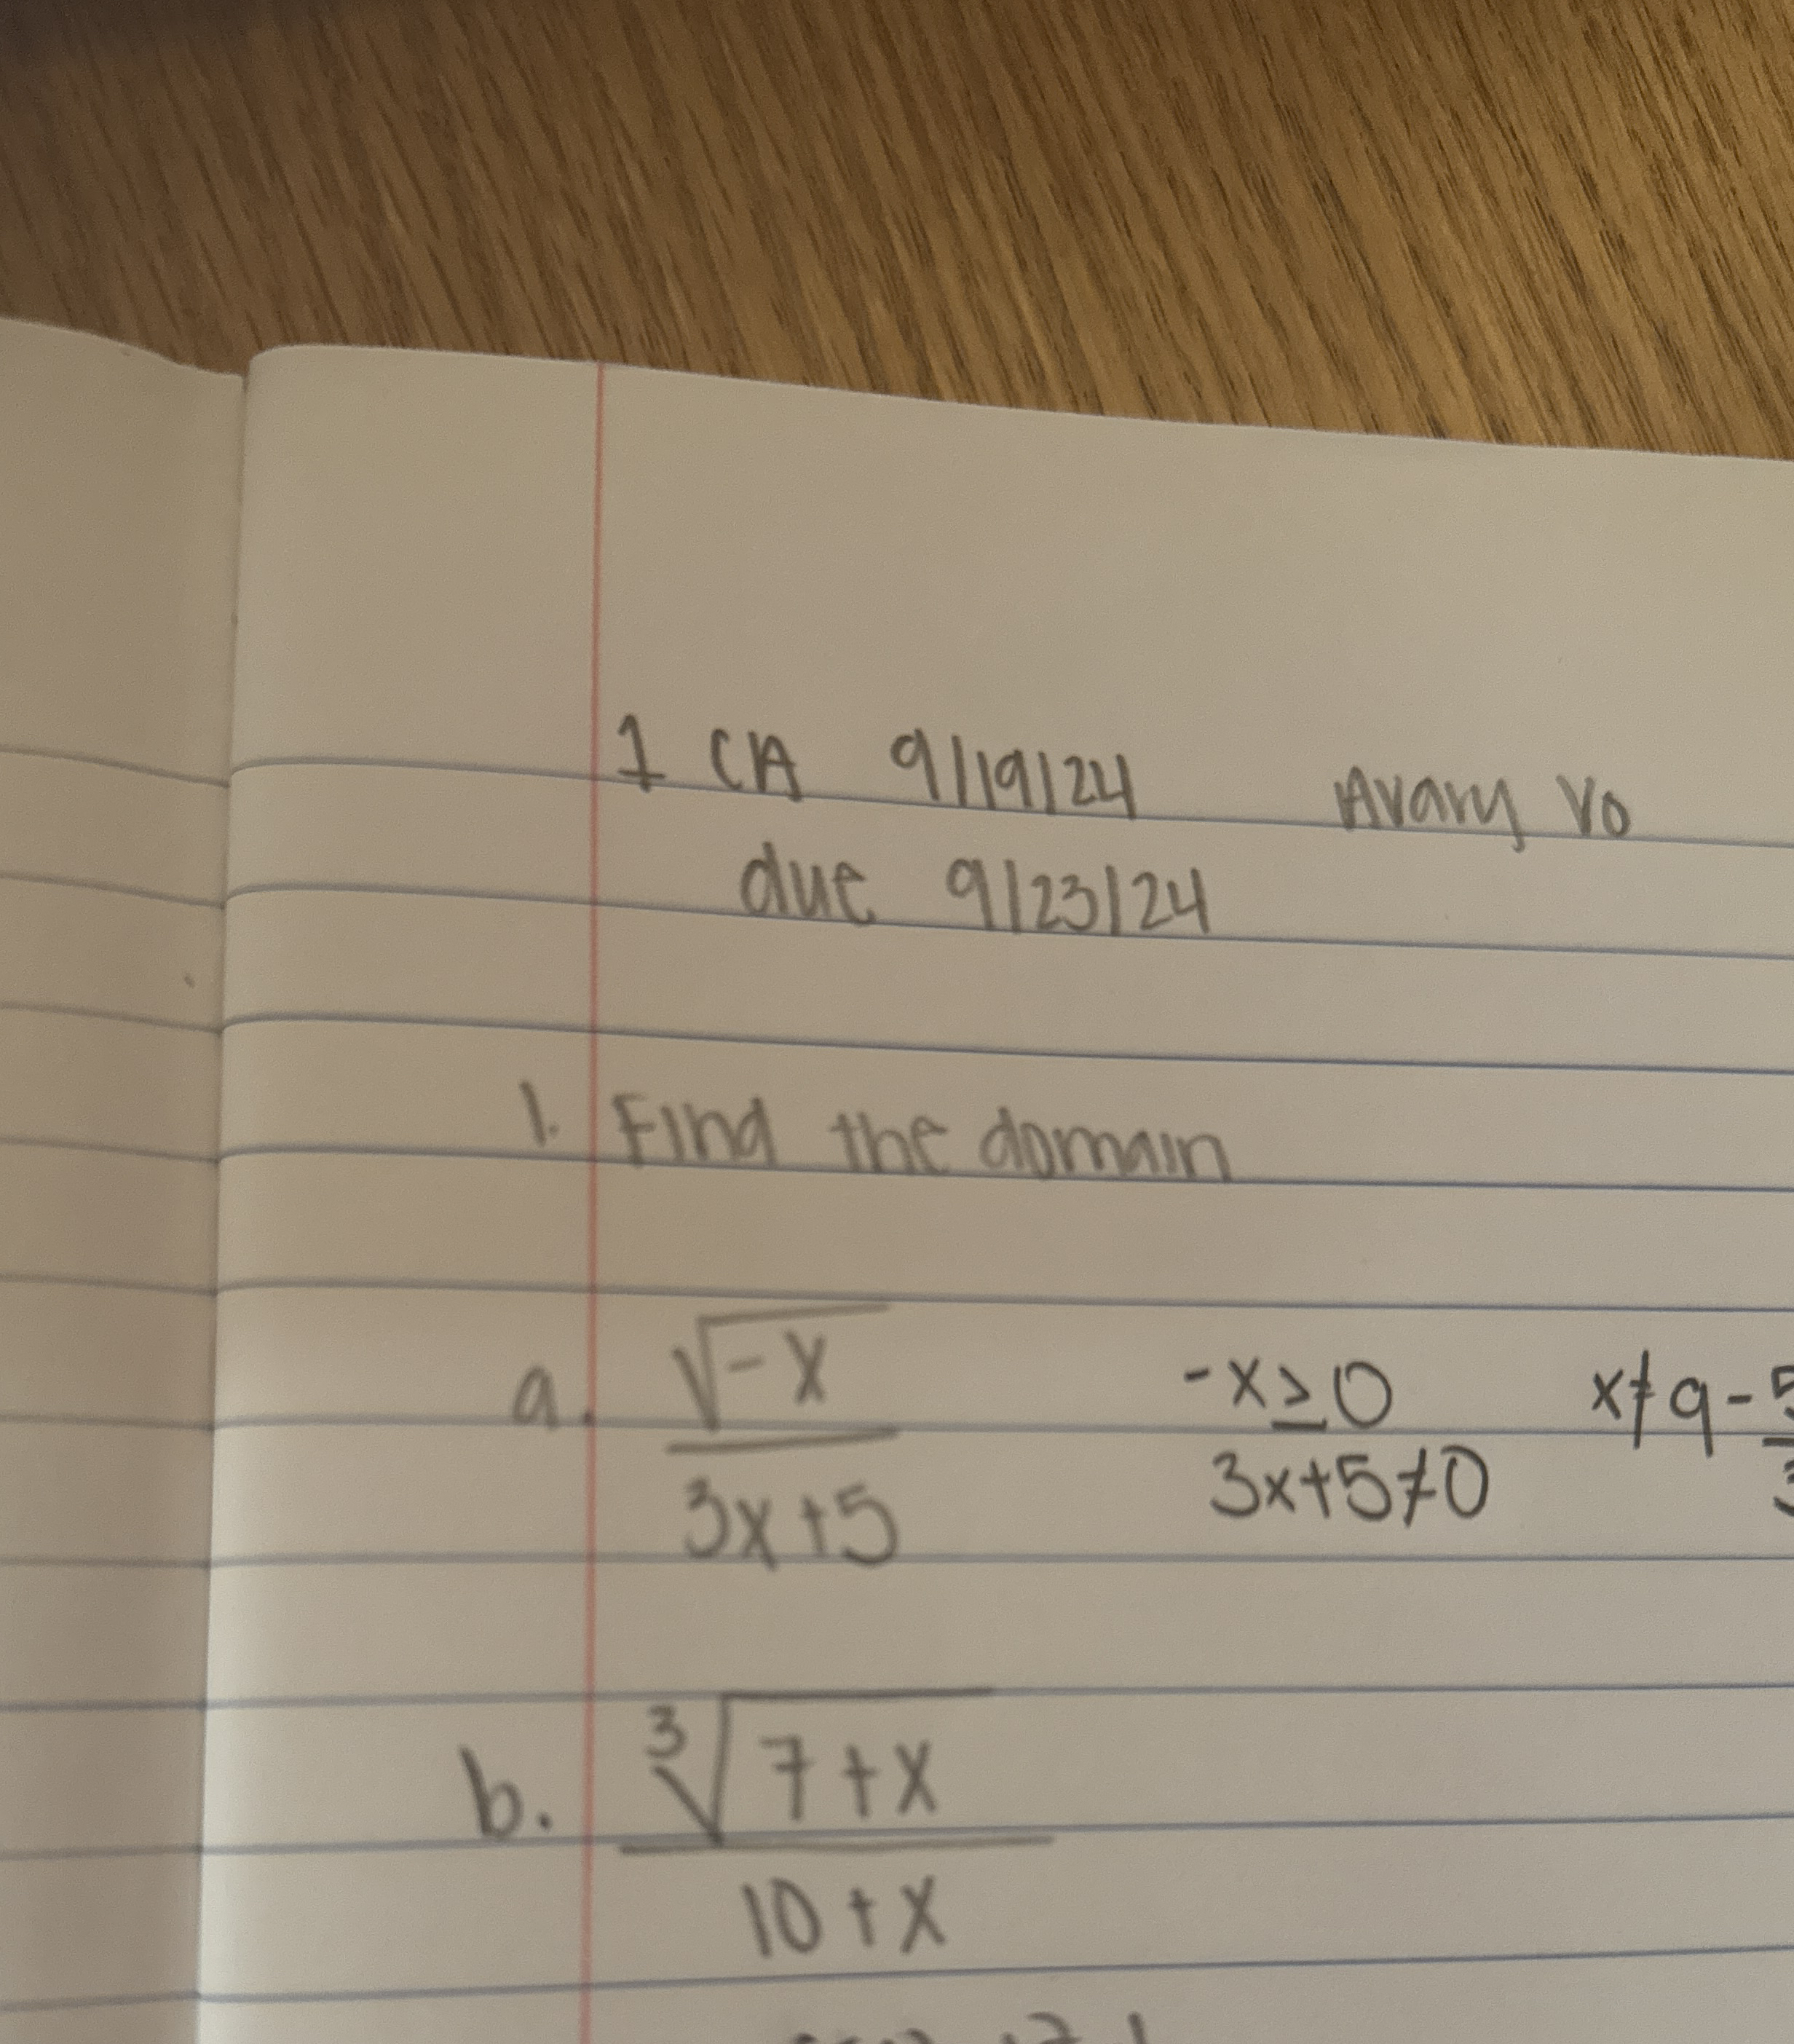 1 CA 9/19/24 Avary Vo
due 9/23/24
1. Find the domain
a. √-x / 3x+5 -x≥0 x≠9-5/3
3x+5≠0
b. ³√7+x / 10+x